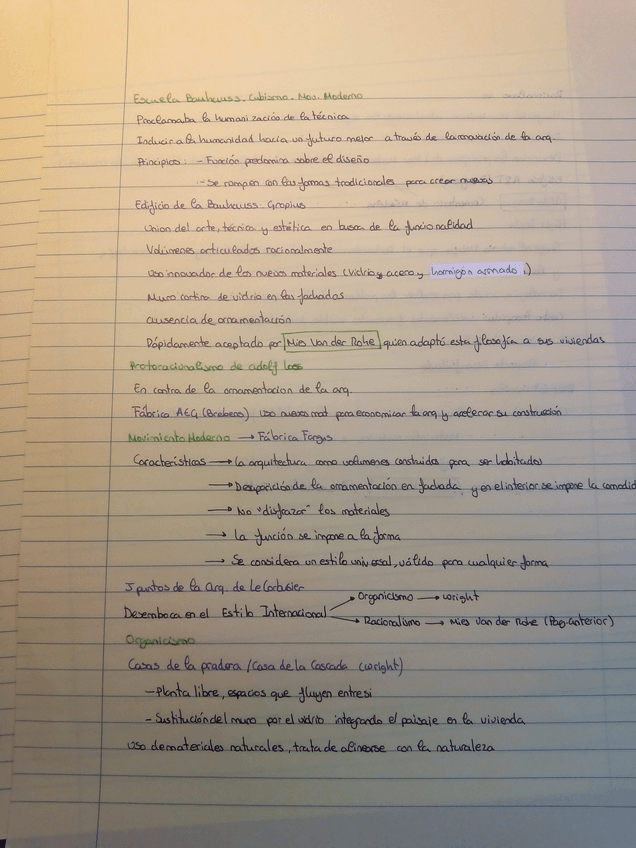 Escuela Bauhauss. Cubismo. Mov. Moderno
Proclamaba la humanización de la técnica
Inducir a la humanidad hacia un futuro mejor a través de la renovación de la arq.
Principios: - Función predomina sobre el diseño
- Se rompen con las formas tradicionales para crear nuevas
Edificio de la Bauhauss. Gropius
Union del arte, técnica y estética en busca de la funcionalidad
Volúmenes articulados racionalmente
Uso innovador de los nuevos materiales (vidrio y acero y hormigón armado.)
Muro cortina de vidrio en las fachadas
Ausencia de ornamentación
Rápidamente aceptado por Mies Van der Rohe quien adaptó esta filosofía a sus viviendas
Protoracionalismo de adolf Loos
En contra de la ornamentacion de la arq.
Fábrica AEG (Brehens) uso nuevos mat para economizar la arq y acelerar su construcción
Movimiento Moderno → Fábrica Fagus
Características → La arquitectura como volumenes construidos para ser habitados
→ Desaparición de la ornamentación en fachada, y en el interior se impone la comodid
→ No "disfrazar" los materiales
→ La función se impone a la forma
→ Se considera un estilo universal, válido para cualquier forma
5 puntos de la arq. de Le Corbusier
Desemboca en el Estilo Internacional → Organicismo → Wright
→ Racionalismo → Mies Van der Rohe (Pag. anterior)
Organicismo
Casas de la pradera / Casa de la Cascada (Wright)
- Planta libre, espacios que fluyen entre si
- Sustitución del muro por el vidrio integrando el paisaje en la vivienda
Uso de materiales naturales, trata de alinearse con la naturaleza